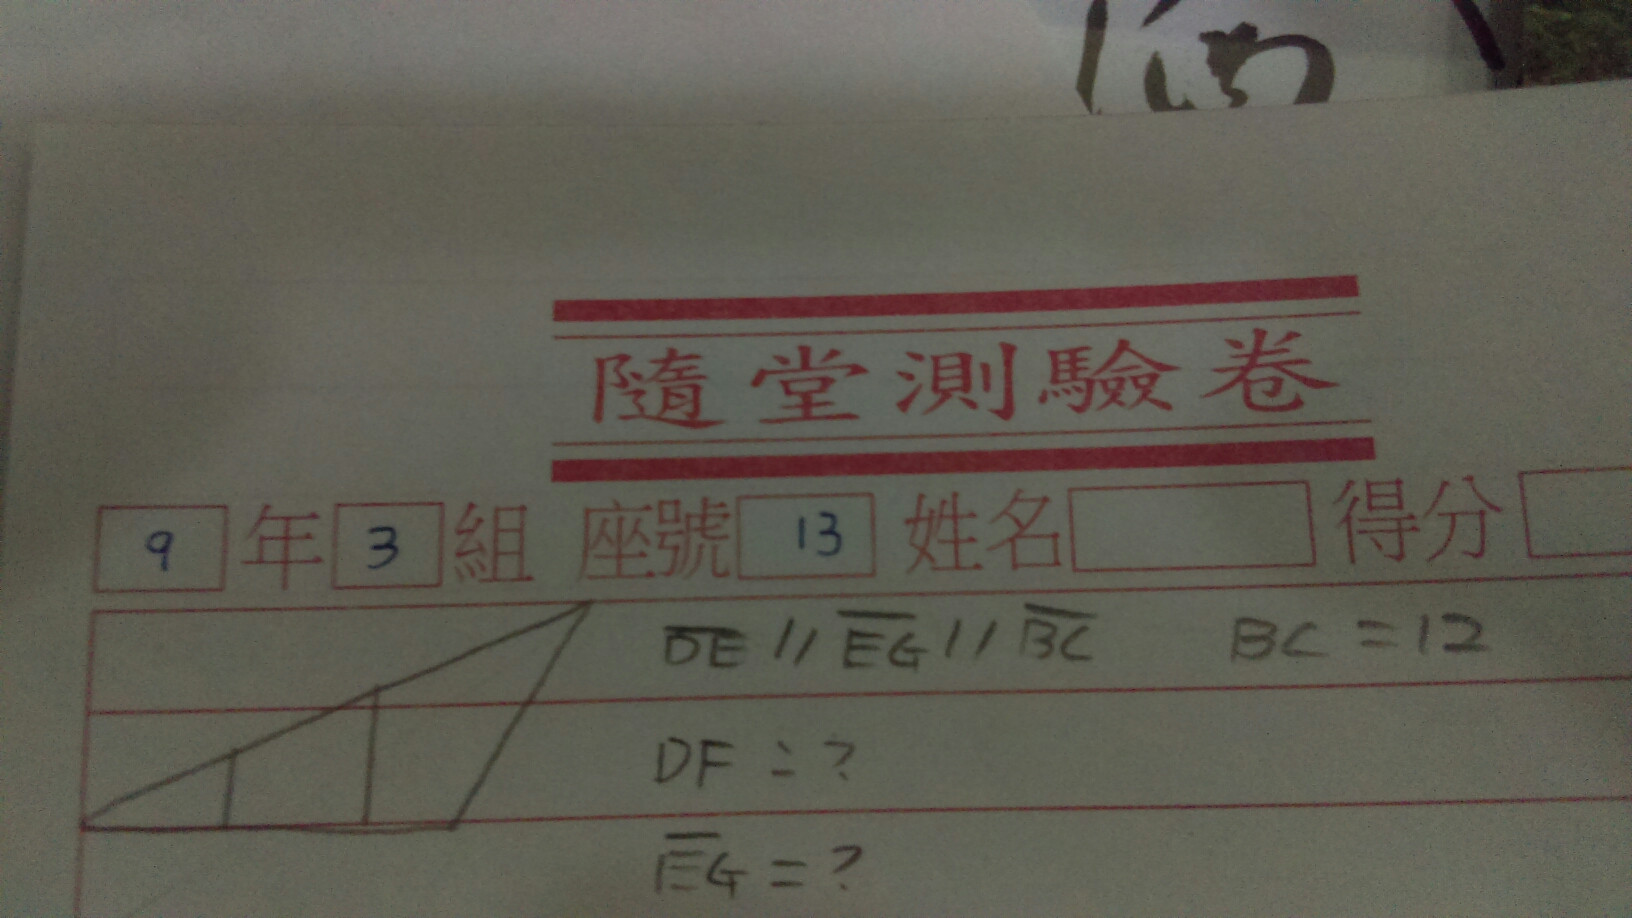 隨堂測驗卷
9年3組 座號13 姓名 得分
DE // EG // BC BC = 12
DF = ?
EG = ?